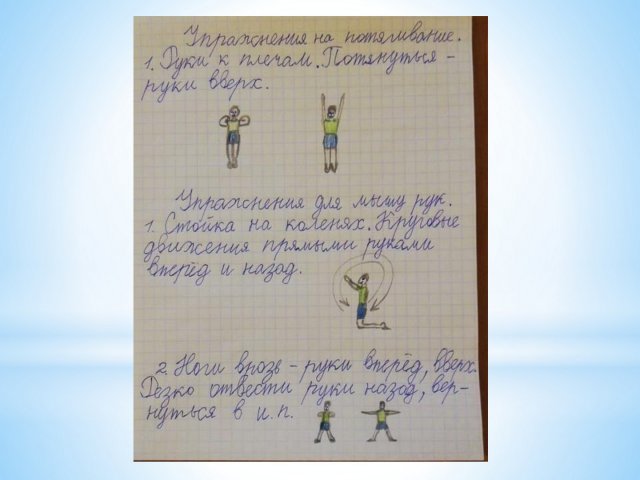 Упражнения на потягивание.
1. Руки к плечам. Потянуться -
руки вверх.
Упражнения для мышц рук.
1. Стойка на коленях. Круговые
движения прямыми руками
вперёд и назад.
2. Ноги врозь - руки вперёд, вверх.
Резко отвести руки назад, вер-
нуться в и.п.